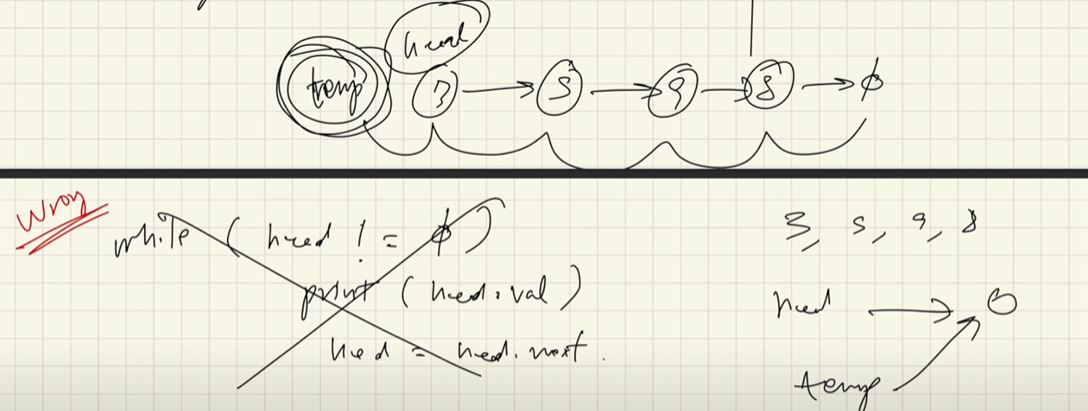 head
temp 3 → 5 → 9 → 8 → ϕ
Wrong
while ( head ! = ϕ )
print ( head.val )
head = head.next .
3, 5, 9, 8
head → O
temp